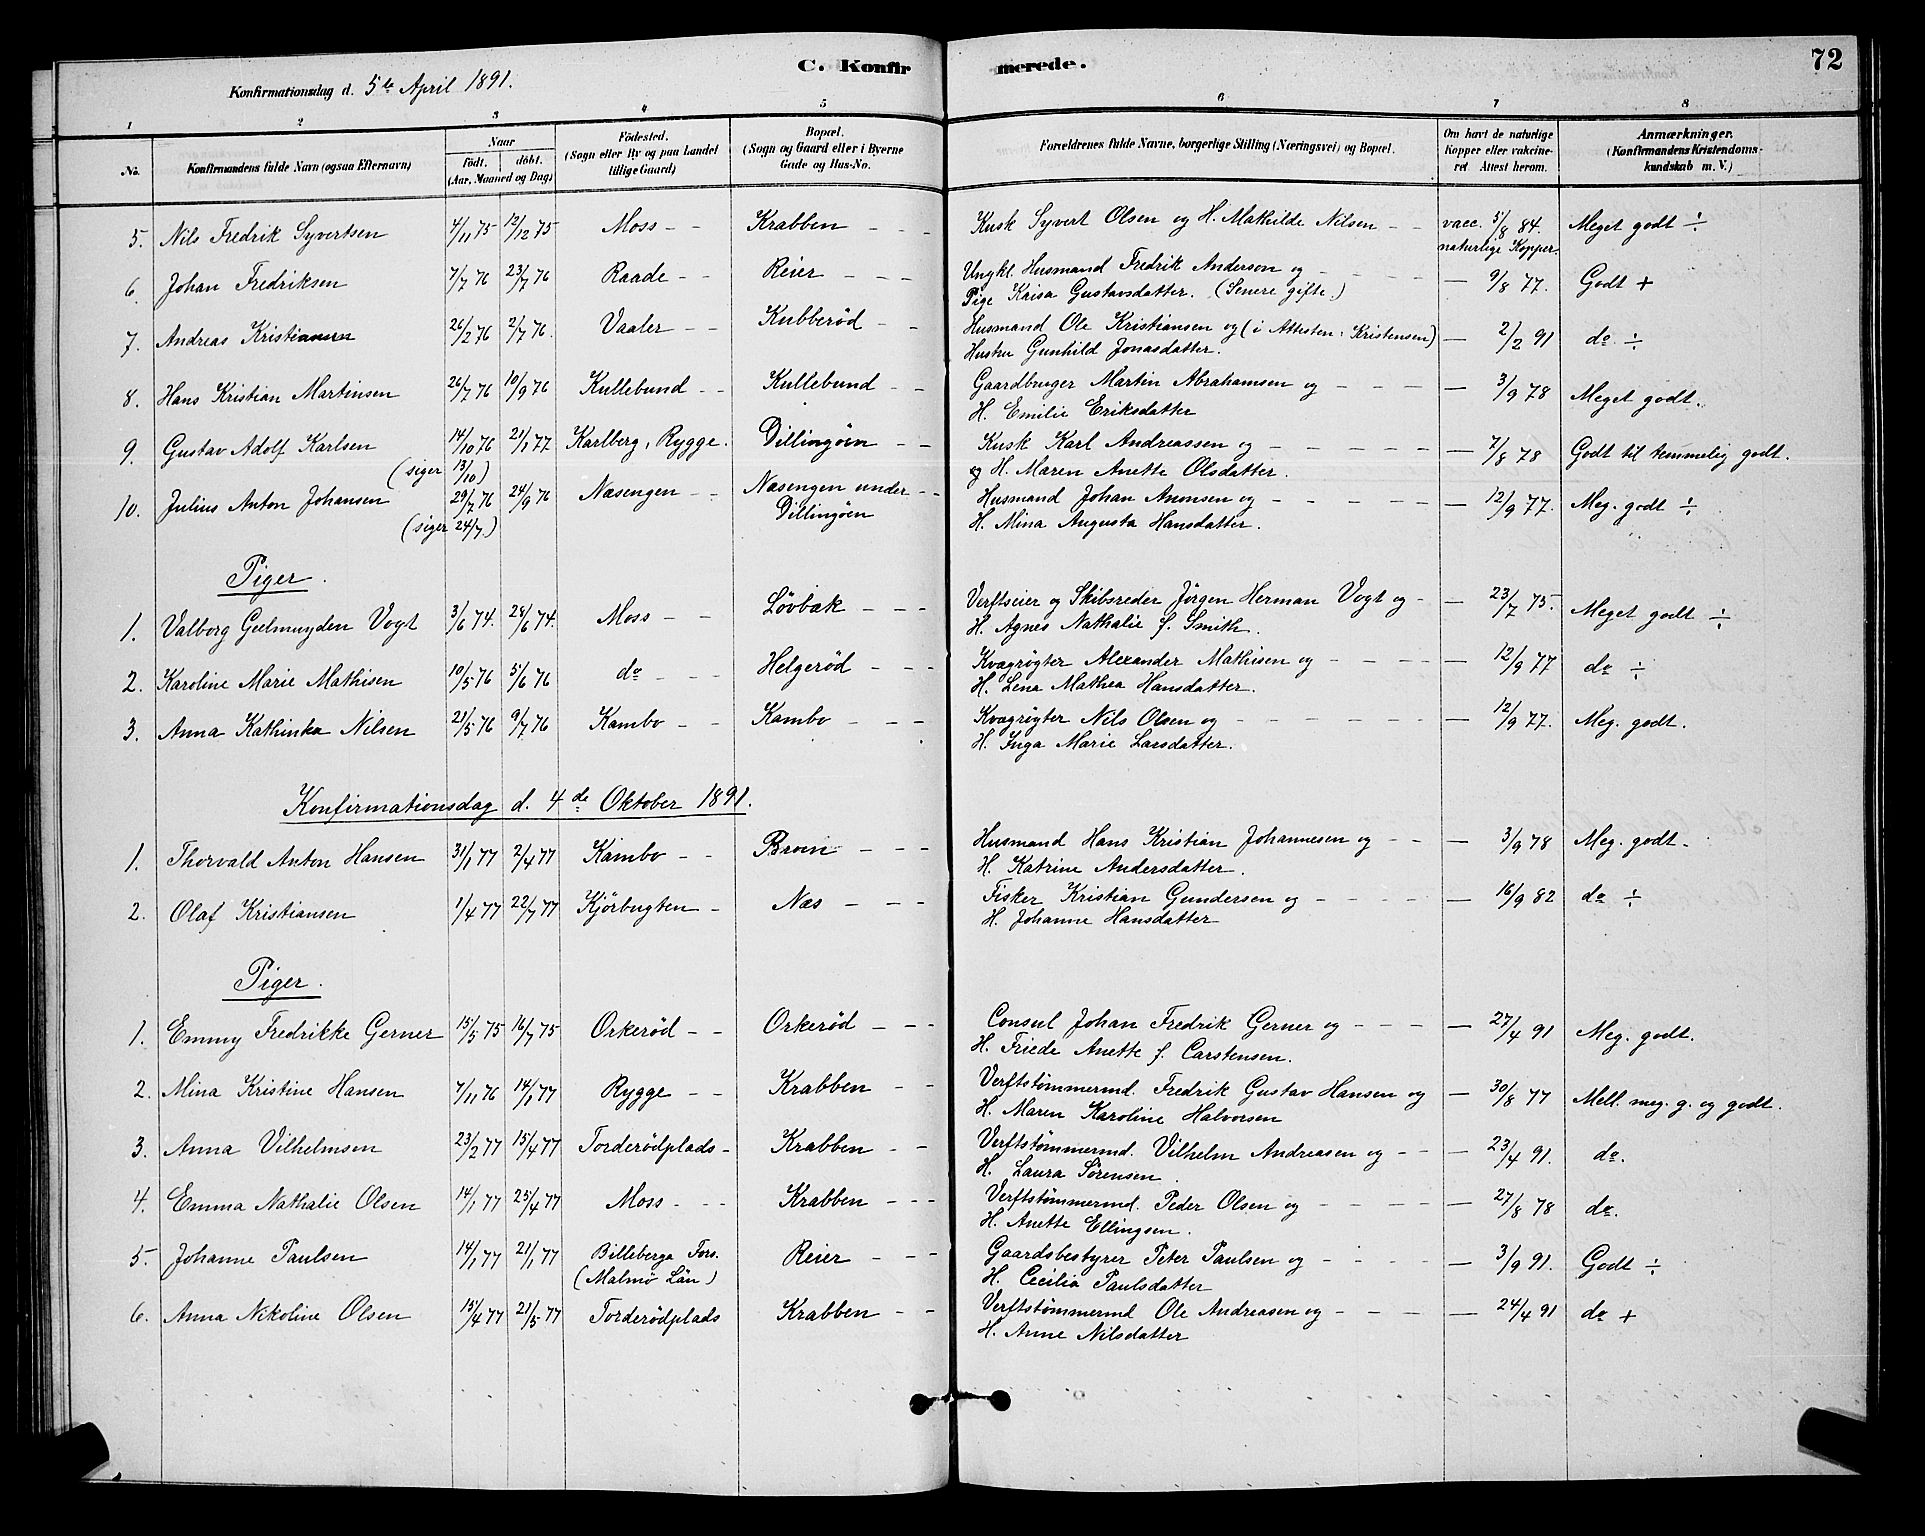 C. Konfirmerede.
72
Konfirmationsdag d. 5te April 1891.
1 2 3 4 5 6 7 8
No. Konfirmandens fulde Navn (ogsaa Efternavn) Naar født. døbt. (Aar, Maaned og Dag) Fødested. (Sogn eller By og paa Landet tillige Gaard) Bopæl. (Sogn og Gaard eller i Byerne Gade og Hus-No. Forældrenes fulde Navne, borgerlige Stilling (Næringsvei) og Bopæl. Om havt de naturlige Kopper eller vaccineret Attest herom. Anmærkninger. (Konfirmandens Kristendomskundskab m. V.)
5. Nils Fredrik Syvertsen 4/11 75 12/12 75 Moss - - Krabben - - - Kusk Syvert Olsen og H. Mathilde Nilsen - - vacc. 5/8 84. Meget godt ÷
naturlige Kopper.
6. Johan Fredriksen 7/7 76 23/7 76 Raade - - Reier - - - Ungkl. Husmand Fredrik Anderson og - - - - — 9/8 77. Godt +
Pige Kaisa Gustavsdatter. (Senere gifte.)
7. Andreas Kristiansen 26/2 76 2/7 76. Vaaler - - Kubberød - - Husmand Ole Kristiansen og (i Attesten: Kristensen) — 2/2 91 do ÷
Hustru Gunhild Jonasdatter.
8. Hans Kristian Martinsen 26/7 76 10/9 76 Kullebund - - Kullebund - - Gaardbruger Martin Abrahamsen og - - - — 3/9 78 Meget godt.
H. Emilie Eriksdatter
9. Gustav Adolf Karlsen 14/10 76 21/1 77 Karlberg, Rygge. Dillingøen - - Kusk Karl Andreassen og - - - - — 7/8 78 Godt til temmelig godt.
(siger 13/10) og H. Maren Anette Olsdatter.
10. Julius Anton Johansen 29/7 76 24/9 76 Næsengen - - Næsengen under - - Husmand Johan Anonsen og - - - - — 12/9 77. Meg. godt ÷
(siger 24/7.) Dillingøen H. Mina Augusta Hansdatter.
Piger.
1. Valborg Geelmuyden Vogt 3/6 74. 28/6 74. Moss - - Løvbæk - - - Verftseier og Skibsreder Jørgen Herman Vogt og - — 23/7 75. Meget godt ÷
H. Agnes Nathalie f. Smith.
2. Karoline Marie Mathisen 10/5 76 5/6 76 do - - - Helgerød - - - Kvægrøgter Alexander Mathisen og - - - - — 12/9 77 do ÷
H. Lena Mathea Hansdatter.
3. Anna Kathinka Nilsen 21/5 76 9/7 76 Kambo - - Kambo - - - Kvægrøgter Nils Olsen og - - - - - — 12/9 77. Meg. godt.
H. Inga Marie Larsdatter.
Konfirmationsdag d. 4de Oktober 1891.
1. Thorvald Anton Hansen 31/1 77 2/4 77 Kambo - - Broen - - - Husmand Hans Kristian Johannesen og - - — 3/9 78 Meg. godt.
H. Katrine Andersdatter.
2. Olaf Kristiansen 1/4 77 22/7 77 Kjörbugten - Næs - - - Fisker Kristian Gundersen og - - - - — 16/9 82 do ÷
H. Johanne Hansdatter
Piger.
1. Emmy Fredrikke Gerner 15/5 75 16/7 75 Orkerød - - Orkerød - - - Consul Johan Fredrik Gerner og - - - — 27/4 91 Meg. godt.
H. Friede Anette f. Carstensen.
2. Mina Kristine Hansen 7/11 76 14/1 77 Rygge - - Krabben - - Verftstømmermd. Fredrik Gustav Hansen og — 30/8 77 Mell. meg. g. og godt.
H. Maren Karoline Halvorsen
3. Anna Vilhelmsen 23/2 77 15/4 77 Torderødplads - Krabben - - Verftstømmermd. Vilhelm Andreasen og - - — 23/4 91. do.
H. Laura Sørensen
4. Emma Nathalie Olsen 14/1 77 25/4 77 Moss - - - Krabben - - - Verftstømmermd. Peder Olsen og - - - - — 27/8 78 do.
H. Anette Ellingsen.
5. Johanne Paulsen 14/1 77 21/1 77 Billeberga Fors. Reier - - - Gaardsbestyrer Peter Paulsen og - - - - — 3/9 91. Godt ÷
(Malmö Län) H. Cecilia Paulsdatter
6. Anna Nikoline Olsen 15/4 77 21/5 77 Torderødplads Krabben - - Verftstømmermd Ole Andreasen og - - - - — 24/4 91 do +
H. Anne Nilsdatter